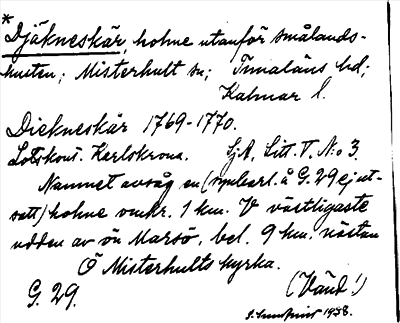 * Djäkneskär, holme utanför smålands-
kusten; Misterhult sn; Tunaläns hd;
Kalmar l.
Diekneskär 1769-1770.
Lotskont. Karlskrona. SjA, Litt. T. N:o 3.
Namnet avsåg en (synbarl. å G. 29 ej ut-
satt) holme omkr. 1 km. V västligaste
udden av ön Marsö, bel. 9 km. nästan
Ö Misterhults kyrka.
G. 29. (Vänd!)
1938.